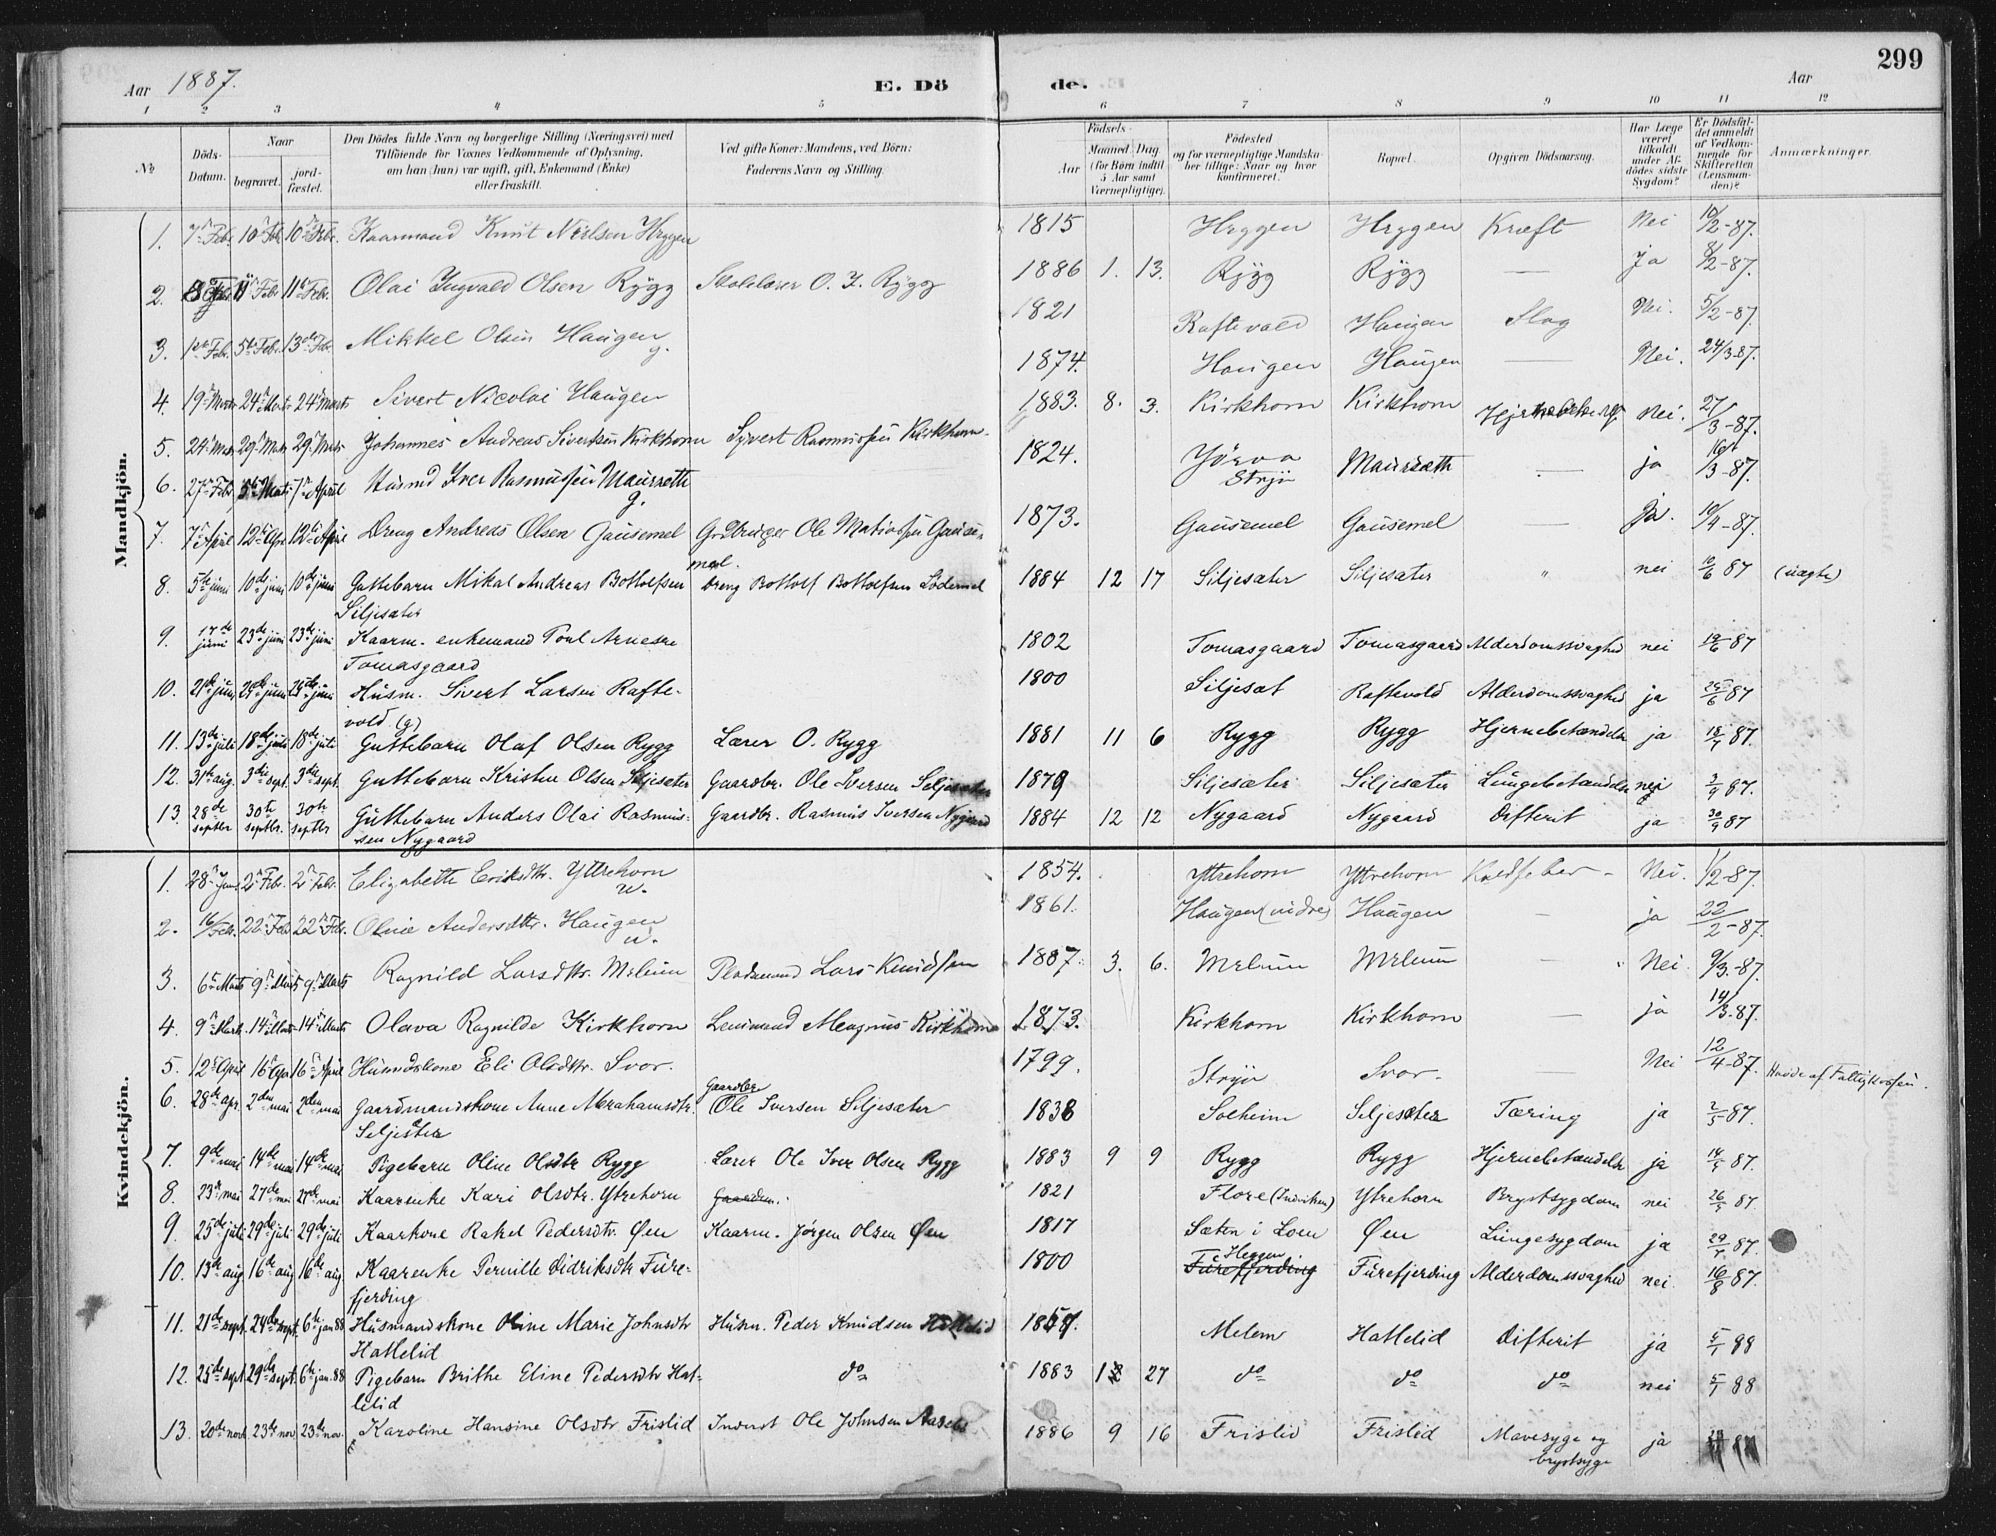 299
Aar 1887. E. Dö de. Aar
1 2 3 4 5 6 7 8 9 10 11 12
No Döds-Datum. Naar begravet. jord-fæstet. Den Dödes fulde Navn og borgerlige Stilling (Næringsvei) med Tilföiende for Voxnes Vedkommende af Oplysning, om han (hun) var ugift, gift, Enkemand (Enke) eller fraskilt. Ved gifte Koner: Mandens, ved Börn: Faderens Navn og Stilling. Födsels- Aar Maaned Dag (for Börn indtil 5 Aar samt Værnepligtige). Födested og for værnepligtige Mandska-ber tillige: Naar og hvor konfirmeret. Bopæl. Opgiven Dödsaarsag. Har Læge været tilkaldt under Af-dödes sidste Sygdom? Er Dödsfal-det anmeldt af Vedkom-mende for Skifteretten (Lensman-den)? Anmærkninger.
Mandkjön.
1. 7de Febr. 10de Febr. 10de Febr. Kaarmand Knut Nielsen Heggen 1815 Heggen Heggen Kræft Nei 10/2-87.
2. 8 Febr. 11 Febr. 11 Febr. Olai Ingvald Olsen Rygg Skolelærer O. I. Rygg 1886 1. 13. Rygg Rygg — Ja 8/2-87.
3. 1ste Febr. 5te Febr. 13de Febr. Mikkel Olsen Haugen g. 1821 Raftevold Haugen Slag Nei. 5/2-87.
4. 19 Marts 24 Marts 24 Marts Sivert Nicolai Haugen 1874. Haugen Haugen — Nei. 24/3-87.
5. 24 Marts 29 Marts 29 Marts Johannes Andreas Sivertsen Kirkhorn Syvert Rasmussen Kirkhorn. 1883. 8. 3. Kirkhorn Kirkhorn Nei. 27/3-87.
6. 27 Febr. 5te Marts 7 April Husmd Iver Rasmussen Maursæth g. 1824. Stryn Maursæth — ja /3-87.
7. 7 April 12 Apr 12 April Dreng Andreas Olsen Gausemel Grdbruger Ole Matiassen Gause-mel. 1873. Gausemel Gausemel — Ja. 10/4-87.
8. 5te juni 10de juni 10de juni Guttebarn Mikal Andreas Bottolfsen Siljesæter Dreng Bottolf Bottolfsen Lødemel 1884 12 17 Siljesæter Siljesæter " nei 10/6 87 (uægte)
9. 17de juni 23de juni 23de juni Kaarm. enkemand Poul Arnesen Tomasgaard 1802 Tomasgaard Tomasgaard Alderdomssvaghed nei 19/6 87
10. 21de juni 25de juni 25de juni Husm. Sivert Larsen Rafte-vold (g) 1800 Siljesæt Raftevold Alderdomssvaghed ja 25/6 87
11. 13de juli 18de juli 18de juli Guttebarn Olaf Olsen Rygg Lærer O. Rygg 1881 11 6 Rygg Rygg Hjernebetændelse ja 18/7 87.
12. 31te aug. 3die sept. 3die sept. Guttebarn Kristen Olsen Siljesæter Gaardbr. Ole Iversen Siljesæter 1879 Siljesæter Siljesæter Lungebetændelse nei 3/9 87.
13. 28de septbr 30te septbr. 30te septbr Guttebarn Anders Olai Rasmus-sen Nygaard Gaardbr. Rasmus Iversen Nygaard 1884 12 12 Nygaard Nygaard Difterit ja 30/9 87
Kvindekjön.
1. 28 Jan. 2 Febr. 2 Febr. Elisabeth Eriksdtr. Yttrehorn u. 1854. Yttrehorn Yttrehorn — Nei. 1/2-87.
2. 16/Febr. 22 Febr 22 Febr. Oline Andersdtr. Haugen u. 1861. Haugen (indre) Haugen — ja 22/2-87.
3. 6 Marts 9 Marts 9 Marts Ragnild Larsdtr. Melum Pladsmand Lars Knudssen 1887. 3. 6. Melum Melum — Nei. 9/3-87.
4. 9 Marts 14 Marts 14 Marts Olava Ragnilde Kirkhorn Magnus Kirkhorn 1873. Kirkhorn Kirkhorn — ja 14/3-87.
5. 12 April 16 Apr 16 April Husmdskone Eli Olsdtr. Svor. 1799. Stryn Svor. — Nei 12/4-87. Havde af Fattigkassen.
6. 28de apr. 2den mai 2den mai Gaardmandskone Anne Abrahamsdtr. Siljesæter Gaardbr Ole Iversen Siljesæter 1838 Solheim Siljesæter Tæring ja 2/5 87.
7. 9de mai 14de mai 14de mai Pigebarn Oline Olsdtr Rygg Lærer Ole Iver Olsen Rygg 1883 9 9 Rygg Rygg Hjernebetændelse ja 14/5 87.
8. 23de mai 27de mai 27de mai Kaarenke Kari Olsdtr. Ytrehorn Gaardm. 1821 Flore (Indviken) Ytrehorn Brystsygdom nei 26/5 87.
9. 25de juli 29de juli 29de juli Kaarkone Rakel Pedersdtr. Øen Kaarm. Jørgen Olsen Øen 1817 Sæten i Loen Øen Lungesygdom ja 29/7 87.
10. 13de aug 16de aug 16de aug Kaarenke Pernille Didriksdtr Fure-fjerding 1800 Heggen Furefjerding Furefjerding Alderdomssvaghed nei 16/8 87.
11. 21de sept. 24de sept. 6te jan 88 Husmandskone Oline Marie Johnsdtr Hattelid Husm. Peder Knudsen Hattelid Melem Hattelid Difterit ja 5/1 88
12. 25de sept. 29de sept. 6te jan. 88 Pigebarn Brithe Eline Pedersdtr Hat-lelid do 1883 27 do do do nei 5/1 88
13. 20de novb 23de nov 23de nov. Karoline Hansine Olsdtr Frislid Inderst Ole Johnsen Aaseb 1886 9 16 Frislid Frislid Mavesyge og brystsyge ja